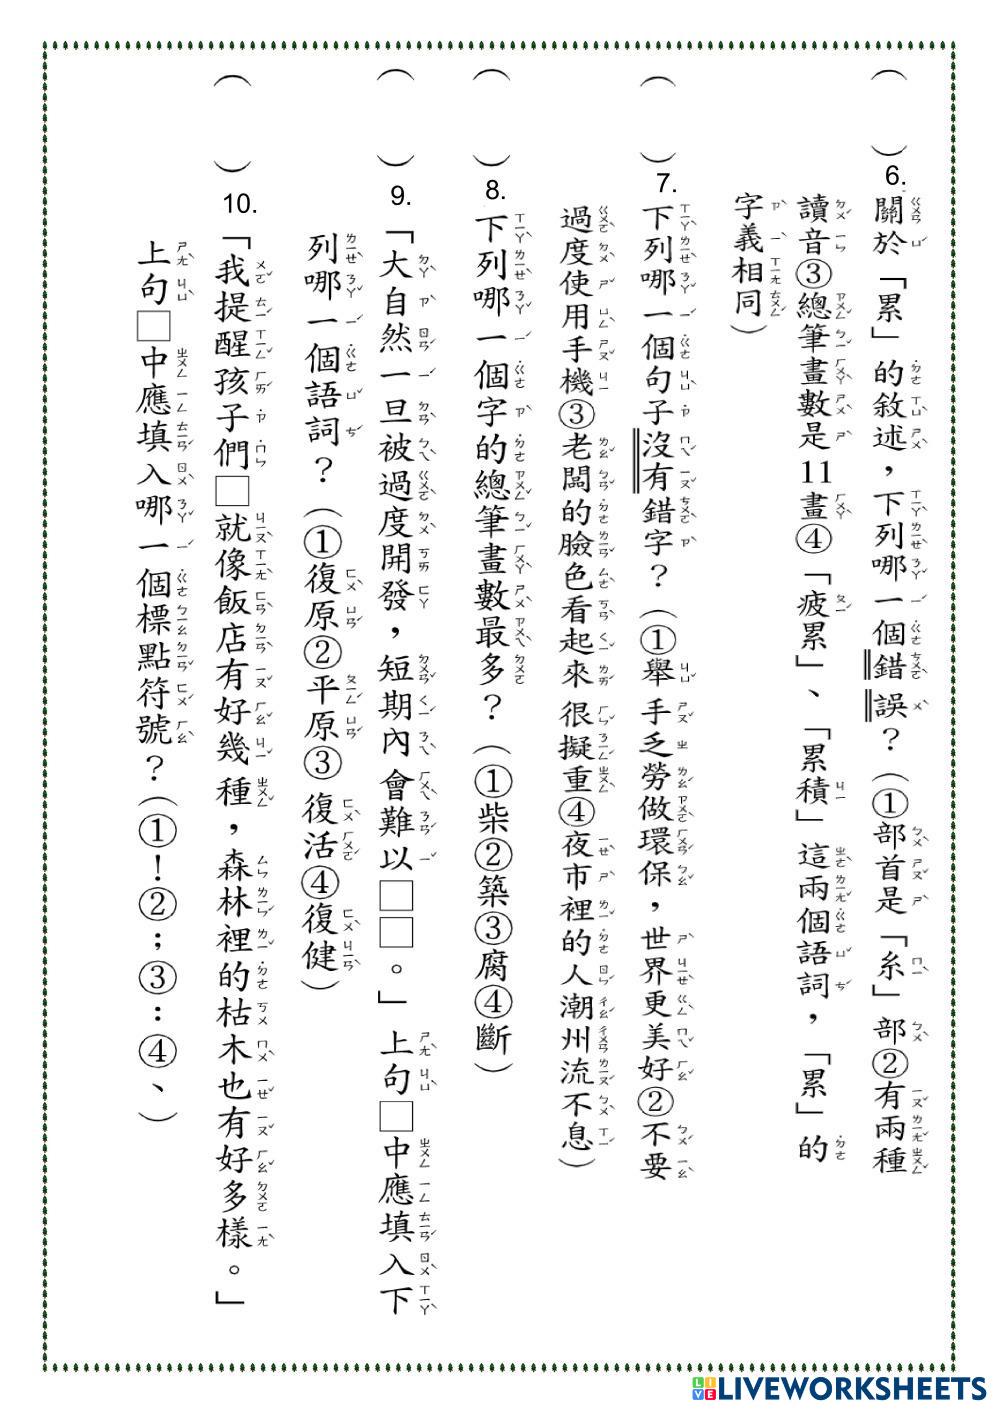 （　）6.關於「累」的敘述，下列哪一個錯誤？（①部首是「糸」部②有兩種
讀音③總筆畫數是11畫④「疲累」、「累積」這兩個語詞，「累」的
字義相同）
（　）7.下列哪一個句子沒有錯字？（①舉手乏勞做環保，世界更美好②不要
過度使用手機③老闆的臉色看起來很擬重④夜市裡的人潮州流不息）
（　）8.下列哪一個字的總筆畫數最多？（①柴②築③腐④斷）
（　）9.「大自然一旦被過度開發，短期內會難以□□。」上句□中應填入下
列哪一個語詞？（①復原②平原③復活④復健）
（　）10.「我提醒孩子們□就像飯店有好幾種，森林裡的枯木也有好多樣。」
上句□中應填入哪一個標點符號？（①！②；③：④、）
LIVEWORKSHEETS